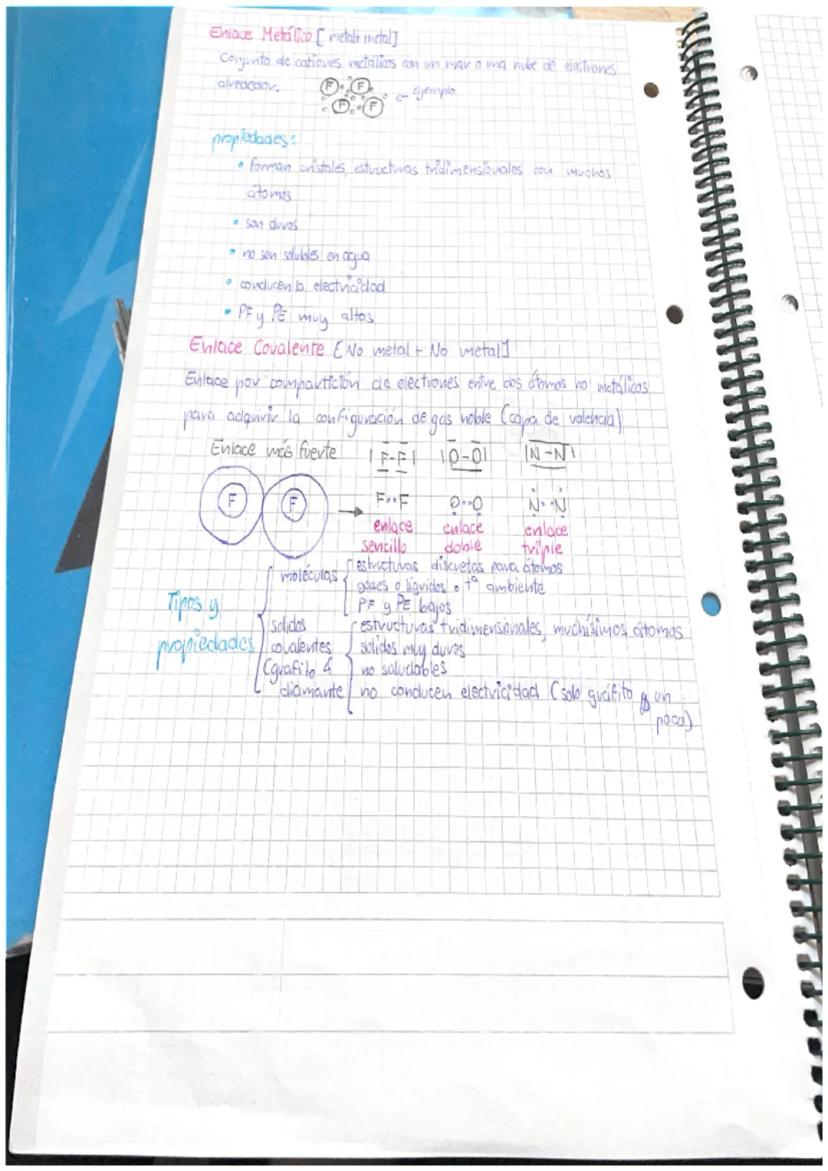 Enlace Metálico [metal+metal]
Conjunto de cationes metálicos con un mar o una nube de electrones
alrededor. F F F F ← ejemplo
propiedades:
• forman cristales, estructuras tridimensionales con muchos
átomos
• son duros
• no son solubles en agua
• conducen la electricidad
• PF y PE muy altos
Enlace Covalente [No metal + No metal]
Enlace por compartición de electrones entre dos átomos no metálicos
para adquirir la configuración de gas noble (capa de valencia)
Enlace más fuerte |F-F| |O-O| |N-N|
F F → F··F O··O N··N
enlace enlace enlace
sencillo doble triple
Tipos y propiedades
moléculas
estructuras discretas para átomos
gases o líquidos a tª ambiente
PF y PE bajos
solidos
covalentes
(grafito &
diamante
estructuras tridimensionales, muchísimos átomos
solidos muy duros
no saludables
no conducen electricidad (solo grafito un
poca)